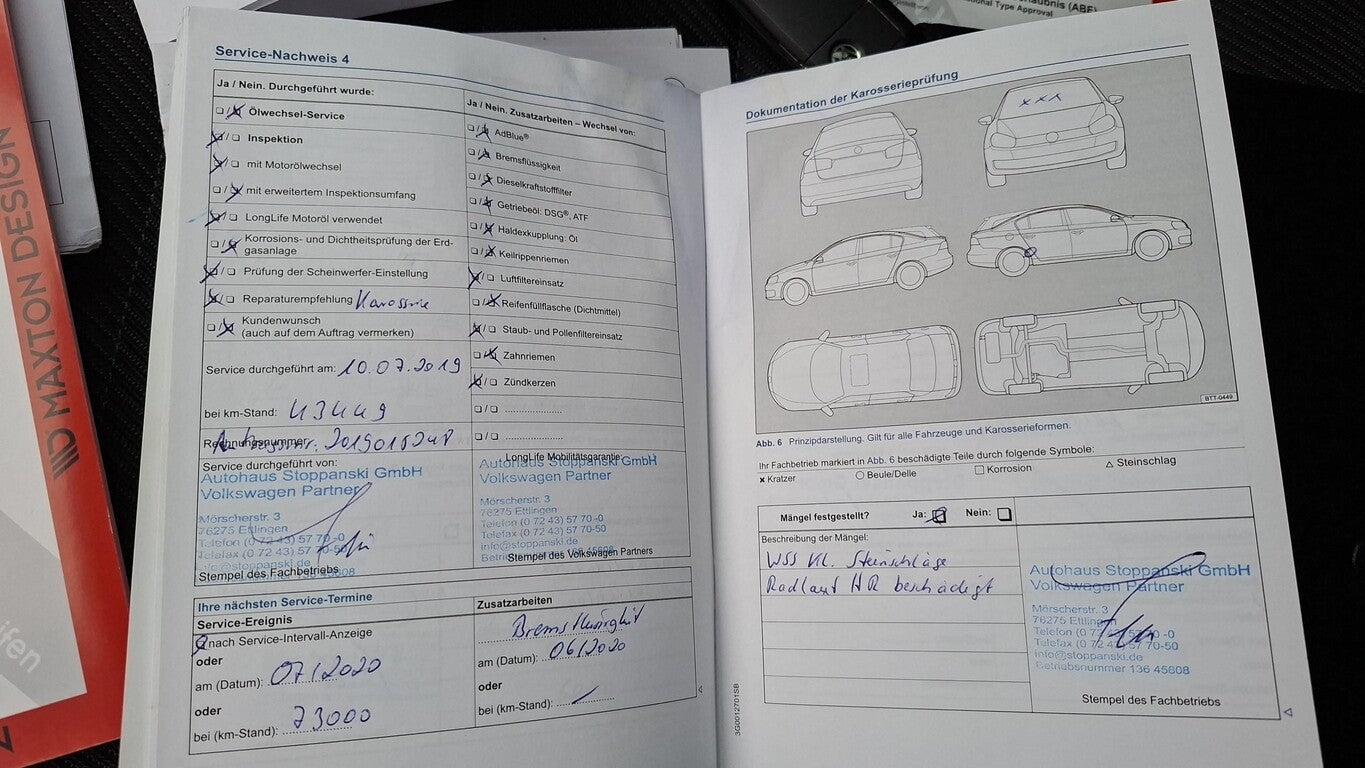 Service-Nachweis 4
Ja / Nein. Durchgeführt wurde:
❏ / ❏ Ölwechsel-Service
❏ / ❏ Inspektion
❏ / ❏ mit Motorölwechsel
❏ / ❏ mit erweitertem Inspektionsumfang
❏ / ❏ LongLife Motoröl verwendet
❏ / ❏ Korrosions- und Dichtheitsprüfung der Erd-
gasanlage
❏ / ❏ Prüfung der Scheinwerfer-Einstellung
❏ / ❏ Reparaturempfehlung Karosserie
❏ / ❏ Kundenwunsch
(auch auf dem Auftrag vermerken)
Service durchgeführt am: 10.07.2019
bei km-Stand: 43449
Rechnungsnummer:
Service durchgeführt von:
Autohaus Stoppanski GmbH
Volkswagen Partner
Mörscherstr. 3
76275 Ettlingen
Telefon (0 72 43) 57 70 -0
Telefax (0 72 43) 57 70-50
Stempel des Fachbetriebs
Ja / Nein. Zusatzarbeiten – Wechsel von:
❏ / ❏ AdBlue®
❏ / ❏ Bremsflüssigkeit
❏ / ❏ Dieselkraftstofffilter
❏ / ❏ Getriebeöl: DSG®, ATF
❏ / ❏ Haldexkupplung: Öl
❏ / ❏ Keilrippenriemen
❏ / ❏ Luftfiltereinsatz
❏ / ❏ Reifenfüllflasche (Dichtmittel)
❏ / ❏ Staub- und Pollenfiltereinsatz
❏ / ❏ Zahnriemen
❏ / ❏ Zündkerzen
❏ / ❏ ...............
❏ / ❏ ...............
LongLife Mobilitätsgarantie:
Autohaus Stoppanski GmbH
Volkswagen Partner
Mörscherstr. 3
76275 Ettlingen
Telefon (0 72 43) 57 70 -0
Telefax (0 72 43) 57 70-50
info@stoppanski.de
Stempel des Volkswagen Partners
Ihre nächsten Service-Termine
Service-Ereignis
nach Service-Intervall-Anzeige
oder
am (Datum): 07/2020
oder
bei (km-Stand): 73000
Zusatzarbeiten
Bremsflüssigkeit
am (Datum): 06/2020
oder
bei (km-Stand):
Dokumentation der Karosserieprüfung
x x x
BTT-0449
Abb. 6 Prinzipdarstellung. Gilt für alle Fahrzeuge und Karosserieformen.
Ihr Fachbetrieb markiert in Abb. 6 beschädigte Teile durch folgende Symbole:
x Kratzer ○ Beule/Delle □ Korrosion △ Steinschlag
Mängel festgestellt? Ja: ❏ Nein: ❏
Beschreibung der Mängel:
WSS kl. Steinschläge
Radlauf HR beschädigt
Autohaus Stoppanski GmbH
Volkswagen Partner
Mörscherstr. 3
76275 Ettlingen
Telefon (0 72 43) 57 70 -0
Telefax (0 72 43) 57 70-50
info@stoppanski.de
Betriebsnummer 136 45808
Stempel des Fachbetriebs
3G0012701SB
MAXTON DESIGN
Type Approval
(ABE)